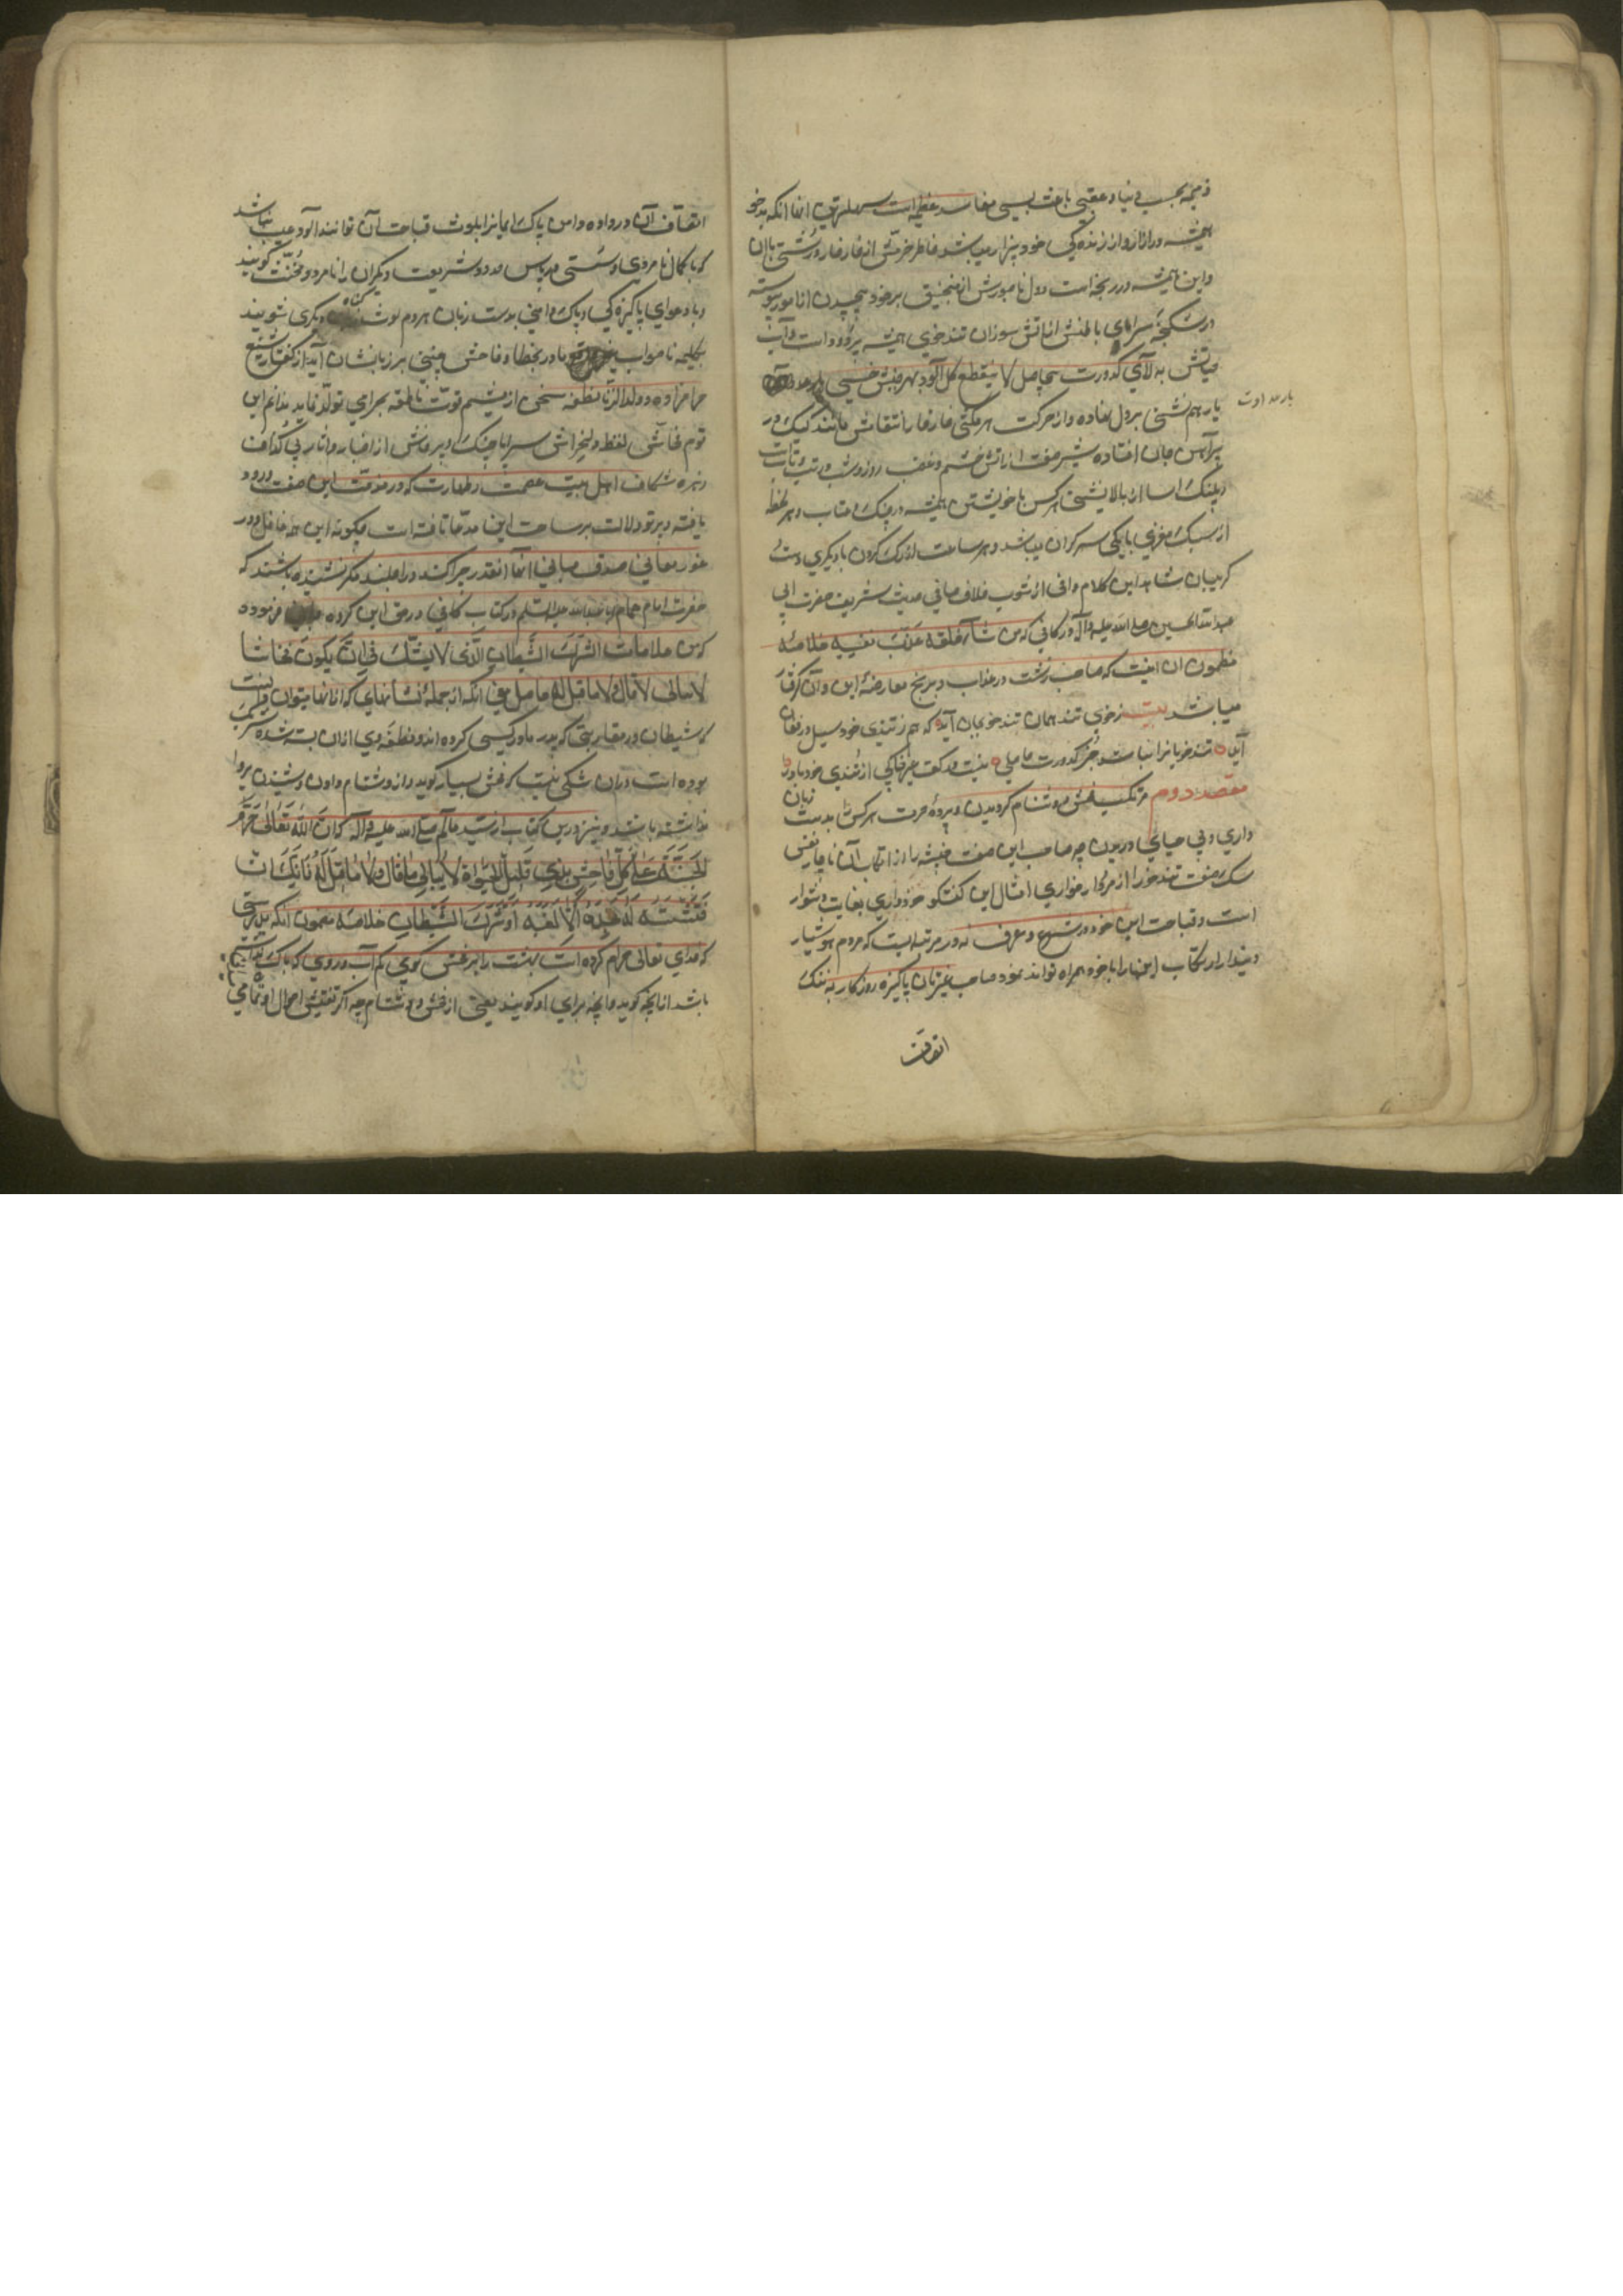 ذمیمه بحسب دنیا و عقبی باعث بسی مفاسد عظیمه است سهلترین آنها آنکه بدخو
همیشه در آزار و از زنده کی خود بیزار میباشد خاطر خرمش از خار خار درشتی با این
و این همیشه در رنجه است و دل ناصبورش از منجنیق بر خود پیچیدن از نامور پیوسته
در شکنجه سراپای باطنش از آتش سوزان تندخویی همیشه پر دود است و آب
حیاتش به لای کدورت بیحاصل لا ینقطع گل آلود بهر جنبش خسی
بار عداوت
یار هم نشینی بر دل نهاده و از حرکت هر مگسی خار خار انتقامش مانند کیک در
پیراهن جان افتاده شیر صفت از آتش خشم و غضب روز و شب در تب و تابست
و پلنک آسا از بالانشینی هر کس با خویشتن همیشه در جنک و عتاب و هر لحظه
از سبک مغزی با یکی سر گران میباشد و هر ساعت از رک گردن با دیگری دست
گریبان شاهد این کلام وافی از شوب خلاف صافی حدیث شریف حضرت ابی
عبدالله الحسین صلی الله علیه و آله در کافی که من ساء خلقه عذب نفسه خلاصه
مظمون آن اینست که صاحب خوی زشت در عذاب و برنج معارضه این و آن گرفتار
میباشد بیت ز خوی تند همان تندخو بجان آید که هم ز تندی خود سیل در فغان
آید تندخویانرا نباشد جز کدورت حاصلی نیست در کف غیر خاکی از تندی خود باد را
مقصد دوم مرتکب فحش و دشنام گردیدن و پرده حرمت هر کس را بدست زبان
داری و بی حیایی دریدن چه صاحب این صفت خبیثه را از ارتکاب آن ناچار نفس
سک صفت تندخو را از مردار خواری امثال این گفتگو خودداری بغایت دشوار
است و قباحت این خود در شرع و عرف نه در مرتبه ایست که مردم هوشیار
دیندار ارتکاب اینها را با خود همراه توانند نمود صاحب غیرتان پاکیزه روزگار به ننک
اتصاف
اتصاف آن در داده دامن پاک ایمانرا بلوث قباحت آن توانند آلود عیب نباشد
که با کمال نامردی و سستی در پاس حدود شریعت دیگران را نامرد و مخنث گویند
و با دعوای پاکیزه کی و پاک دامنی بدست زبان هر دم لوث گناه دیگری شویند
بکلمه ناصواب مادر بخطا و فاحش چنینی بر زبانشان آید از گفتار شنیع
حرامزاده و ولدالزنا نطفه سخن از مشیم قوت ناطقه بحرامی تولد نماید ندانم این
قوم فحاش لفظ دلخراش سراپا جنک و پرخاش از اخبار و آثار بی گذاف
زهره شکاف اهل بیت عصمت و طهارت که در مذمت این صفت ورود
یافته و پرتو دلالت بر ساحت این مدعا تافته است چگونه این همه غافل و در
غور معانی صدق مبانی آنها آنقدر چرا کند در اصلند مگر نشنیده باشند که
حضرت امام همام ابا عبدالله علیه السلام در کتاب کافی در حق این گروه فرموده
که من علامات الشرک الشیطان الذی لا یشک فی ان یکون فحاشا
لا یبالی لا ما قال و لا ما قیل له حاصل معنی آنکه از جمله نشانهای که از آنها میتوان یافت
که شیطان در مقاربتی که پدر مادر کسی کرده اند و نطفه وی از آن بسته شده شریک
بوده است و در آن شکی نیست که فحش بسیار گوید و از دشنام دادن و شنیدن پروا
نداشته باشد و نیز در این کتاب از سید عالم صلی الله علیه و آله که ان الله تعالی حرم
الجنة علی کل فاحش بذی قلیل الحیوة لا یبالی ما قال و لا ما قیل له فانک ان
فتشته لم تجده الا لغیه او شرک الشیطان خلاصه مضمون آنکه بدرستی
که خدای تعالی حرام کرده است بهشت را بر فحش گوی کم آب و روی که باک نداشته
باشد از آنچه گوید و آنچه برای او گویند یعنی از فحش و دشنام چه اگر تفتیش احوال او نمامی